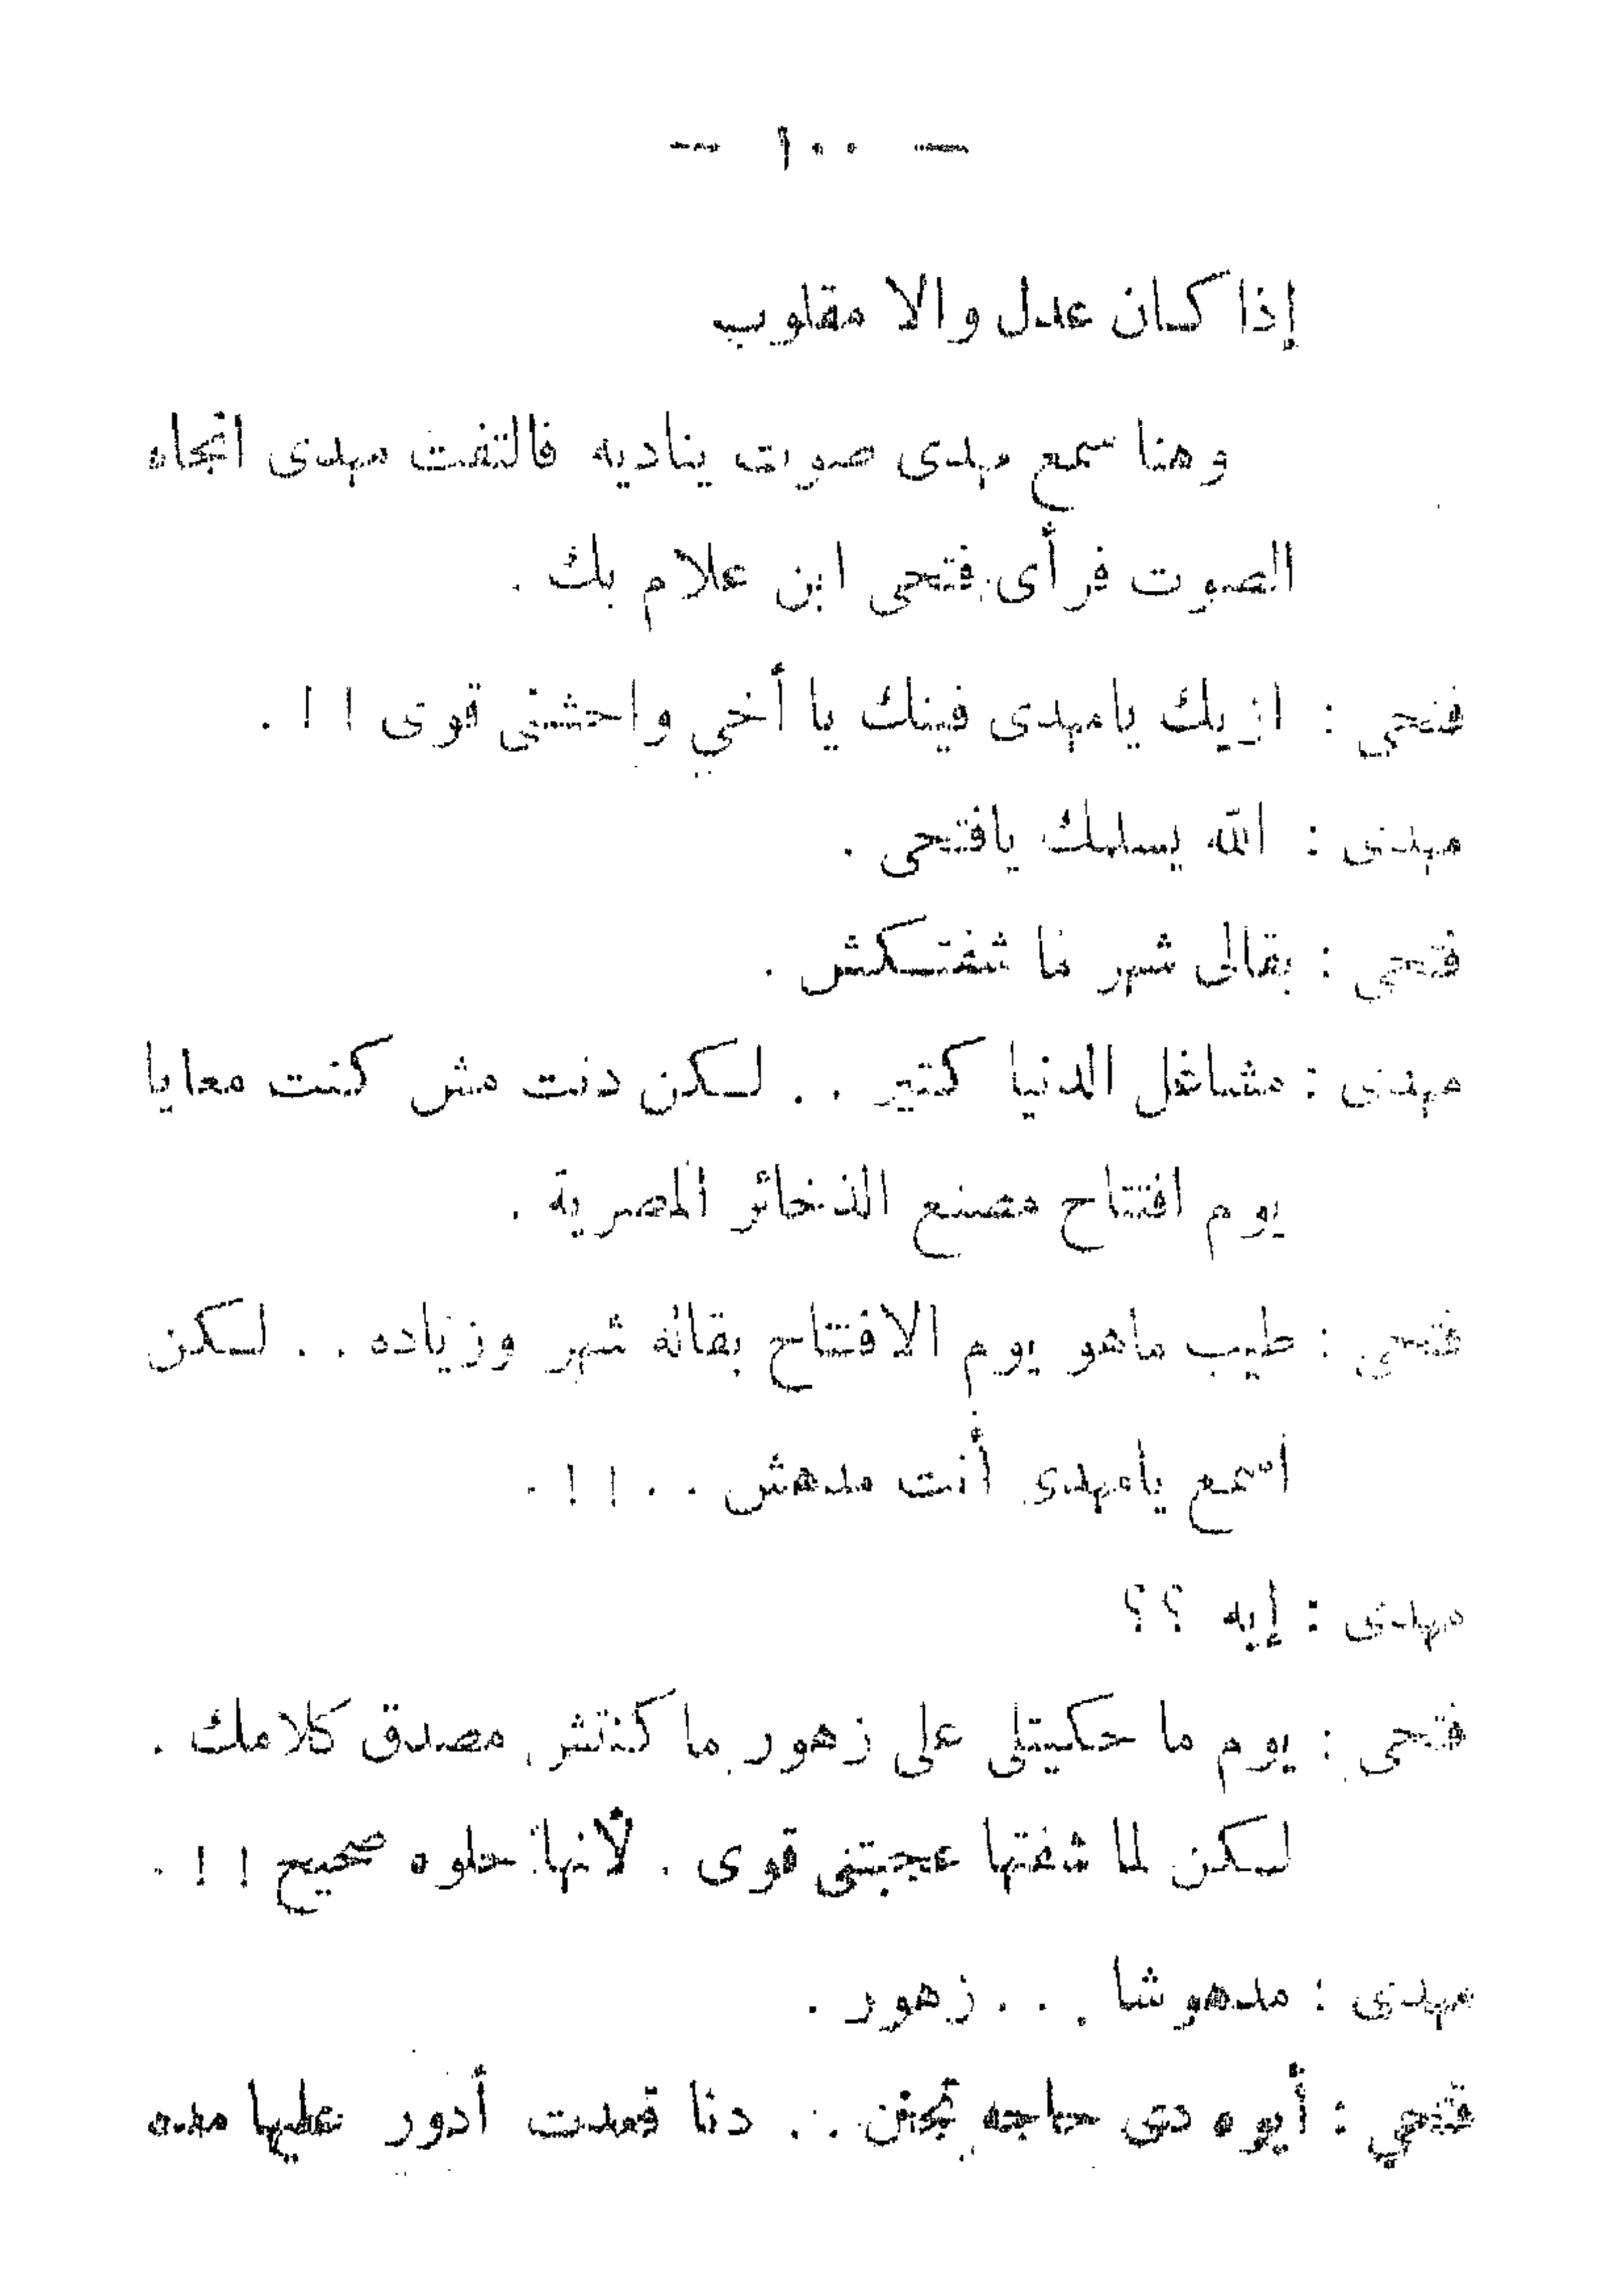 — ١٠٠ —
إذا كان عدل والا مقلوب
وهنا سمع مهدى صوت يناديه فالتفت مهدى اتجاه
الصوت فرأى فتحى ابن علام بك .
فتحي : ازيك يامهدى فينك يا أخي واحشنى قوى ! ! .
مهدى : الله يسلمك يافتحى .
فتحي : بقالى شهر ما شفتكش .
مهدى : مشاغل الدنيا كتير . . لكن دنت مش كنت معايا
يوم افتتاح مصنع الذخائر المصرية .
فتحى : طيب ماهو يوم الافتتاح بقاله شهر وزياده . . لكن
اسمع يامهدى أنت مدهش . . ! ! .
مهدى : إيه ؟؟
فتحى : يوم ما حكيتلى على زهور ما كنتش مصدق كلامك .
لكن لما شفتها عجبتنى قوى . لأنها حلوه صحيح ! ! .
مهدى : مدهوشا . . . زهور .
فتحي : أيوه دى حاجه تجنن . . دنا قعدت أدور عليها مده